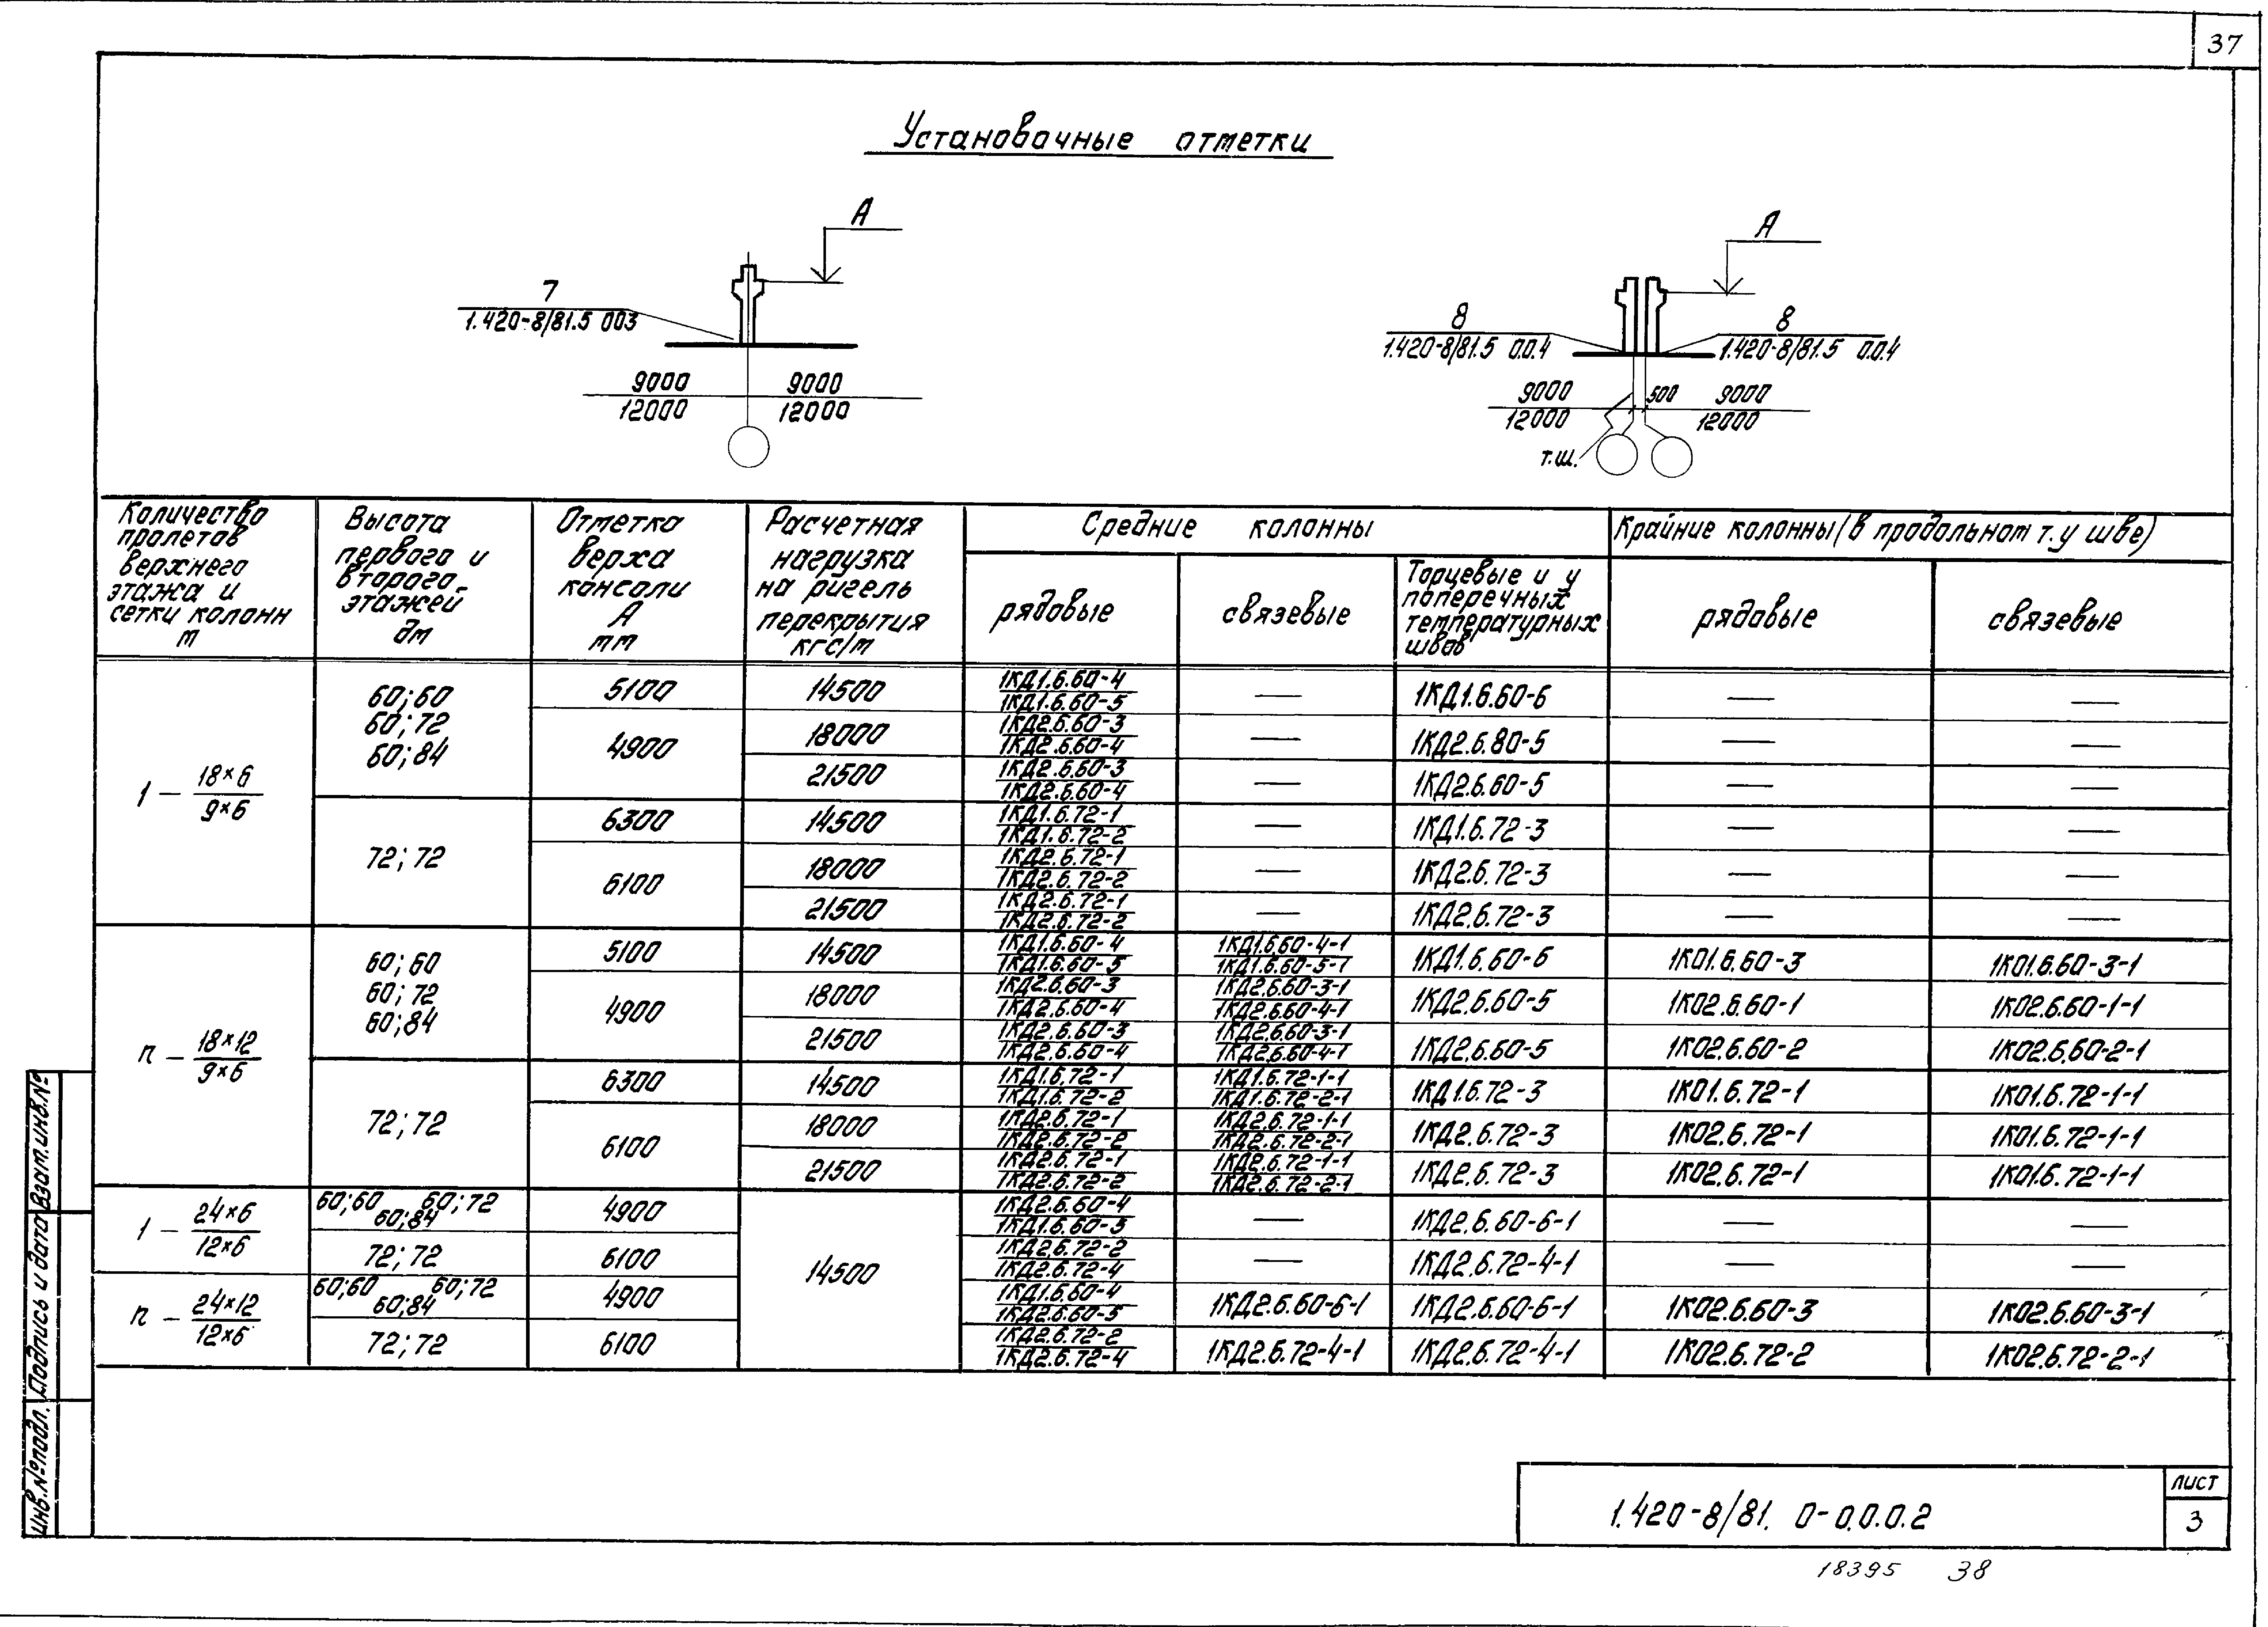 37
Установочные отметки
А
7
1.420-8/81.5 003
9000 9000
12000 12000
А
8
1.420-8/81.5 0.0.4
8
1.420-8/81.5 0.0.4
9000 500 9000
12000 12000
т.ш.
Количество пролетов верхнего этажа и сетки колонн м
Высота первого и второго этажей дм
Отметка верха консоли А мм
Расчетная нагрузка на ригель перекрытия кгс/м
Средние колонны
Крайние колонны (в продольном т.у шве)
рядовые
связевые
Торцевые и у поперечных температурных швов
рядовые
связевые
1 – 18×6 / 9×6
60;60
60;72
60;84
5100 14500 1КД1.6.60-4 / 1КД1.6.60-5 — 1КД1.6.60-6 — —
4900 18000 1КД2.6.60-3 / 1КД2.6.60-4 — 1КД2.6.80-5 — —
21500 1КД2.6.60-3 / 1КД2.6.60-4 — 1КД2.6.60-5 — —
72;72
6300 14500 1КД1.6.72-1 / 1КД1.6.72-2 — 1КД1.6.72-3 — —
6100 18000 1КД2.6.72-1 / 1КД2.6.72-2 — 1КД2.6.72-3 — —
21500 1КД2.6.72-1 / 1КД2.6.72-2 — 1КД2.6.72-3 — —
п – 18×12 / 9×6
60;60
60;72
60;84
5100 14500 1КД1.6.60-4 / 1КД1.6.60-5 1КД1.6.60-4-1 / 1КД1.6.60-5-1 1КД1.6.60-6 1КО1.6.60-3 1КО1.6.60-3-1
4900 18000 1КД2.6.60-3 / 1КД2.6.60-4 1КД2.6.60-3-1 / 1КД2.6.60-4-1 1КД2.6.60-5 1КО2.6.60-1 1КО2.6.60-1-1
21500 1КД2.6.60-3 / 1КД2.6.60-4 1КД2.6.60-3-1 / 1КД2.6.60-4-1 1КД2.6.60-5 1КО2.6.60-2 1КО2.6.60-2-1
72;72
6300 14500 1КД1.6.72-1 / 1КД1.6.72-2 1КД1.6.72-1-1 / 1КД1.6.72-2-1 1КД1.6.72-3 1КО1.6.72-1 1КО1.6.72-1-1
6100 18000 1КД2.6.72-1 / 1КД2.6.72-2 1КД2.6.72-1-1 / 1КД2.6.72-2-1 1КД2.6.72-3 1КО2.6.72-1 1КО1.6.72-1-1
21500 1КД2.6.72-1 / 1КД2.6.72-2 1КД2.6.72-1-1 / 1КД2.6.72-2-1 1КД2.6.72-3 1КО2.6.72-1 1КО1.6.72-1-1
1 – 24×6 / 12×6
60;60 60;72 60;84 4900 14500 1КД2.6.60-4 / 1КД1.6.60-3 — 1КД2.6.60-6-1 — —
72;72 6100 1КД2.6.72-2 / 1КД2.6.72-4 — 1КД2.6.72-4-1 — —
п – 24×12 / 12×6
60;60 60;72 60;84 4900 1КД1.6.60-4 / 1КД2.6.60-5 1КД2.6.60-6-1 1КД2.6.60-6-1 1КО2.6.60-3 1КО2.6.60-3-1
72;72 6100 1КД2.6.72-2 / 1КД2.6.72-4 1КД2.6.72-4-1 1КД2.6.72-4-1 1КО2.6.72-2 1КО2.6.72-2-1
Инв.№подл. Подпись и дата Взам.инв.№
1.420-8/81. 0-0.0.0.2
лист
3
18395 38